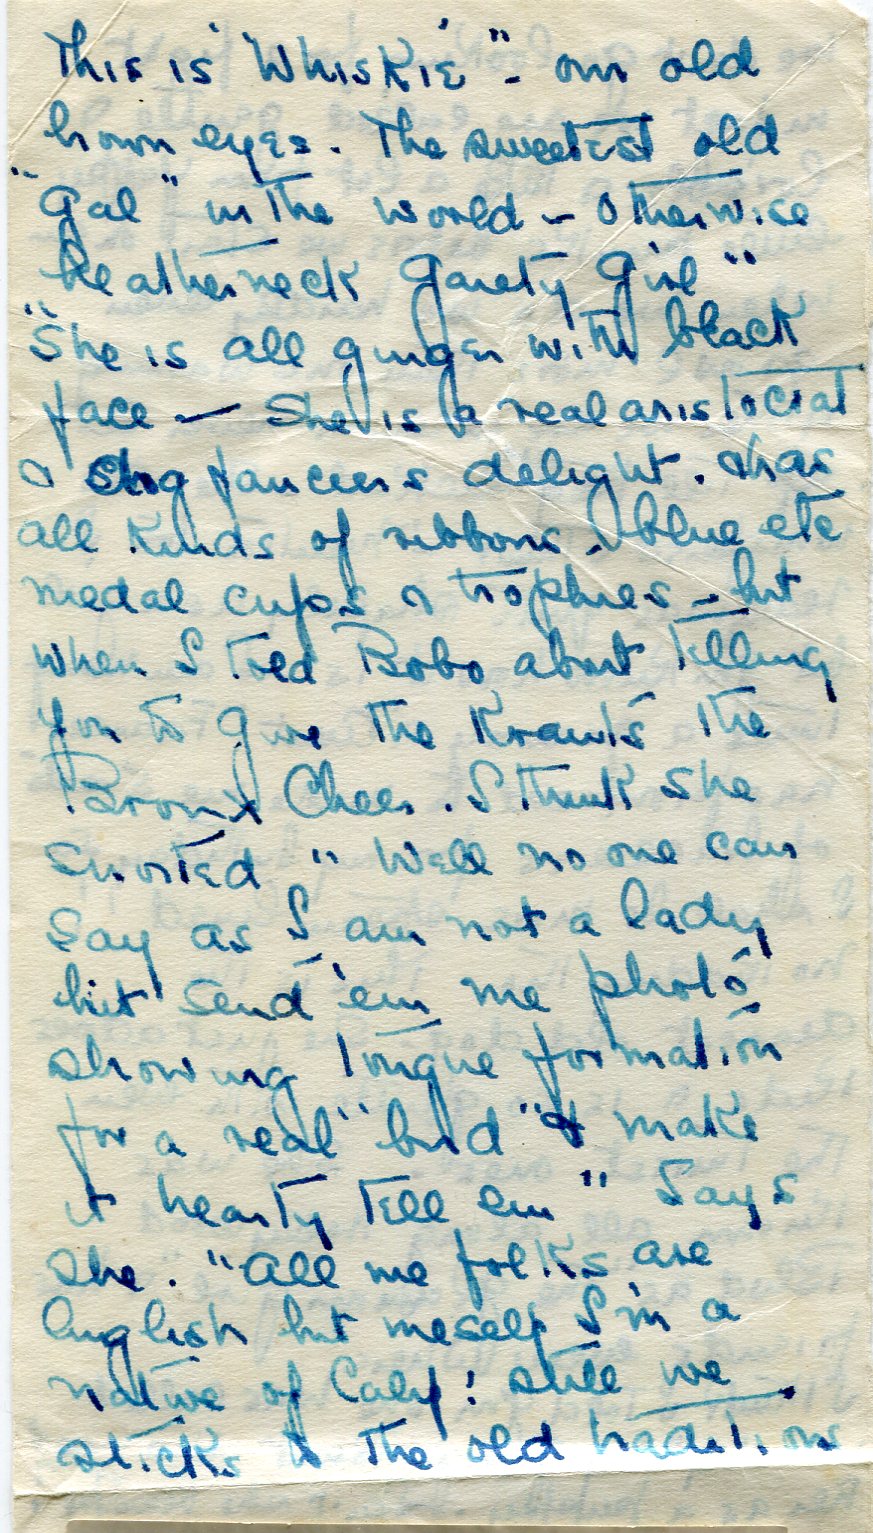 This is "Whiskie" - our old
brown eyes. The sweetest old
"gal" in the world - otherwise
"Leatherneck Gaiety Girl"
"She is all ginger with black
face - She is a real aristocrat
a dog fanciers delight. has
all kinds of ribbons, blue etc
medal cups & trophies - but
when I told Bobo about telling
you to give the Krauts the
Bronx Cheer. I think she
snorted "Well no one can
say as I am not a lady
but send 'em me photo
showing tongue formation
for a real "bird" & make
it hearty tell em" Says
she. "All me folks are
English but meself I'm a
native of Calif! still we
sticks to the old traditions